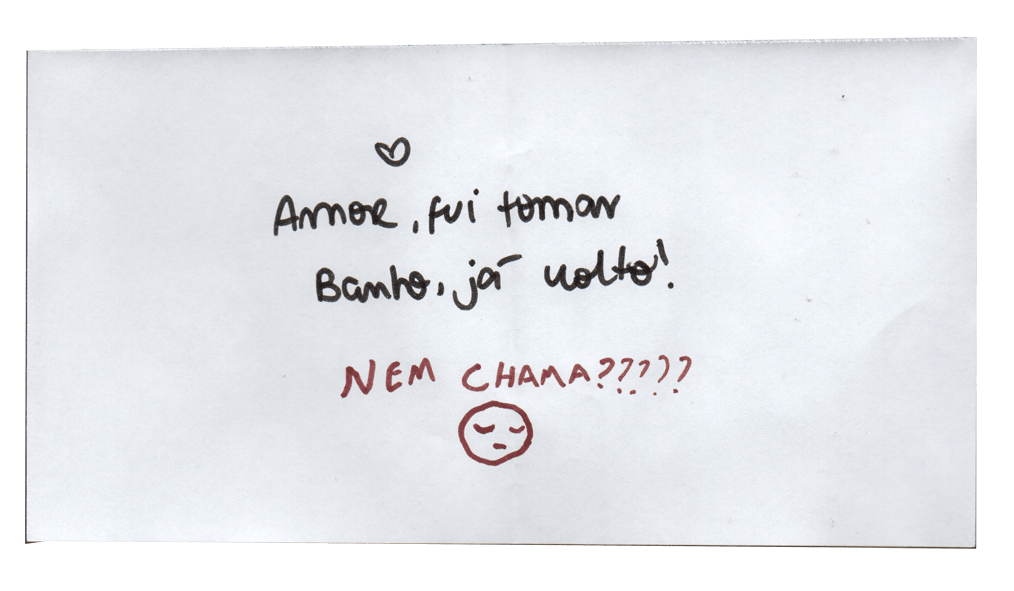 Amor, fui tomar
Banho, já volto!
NEM CHAMA?????